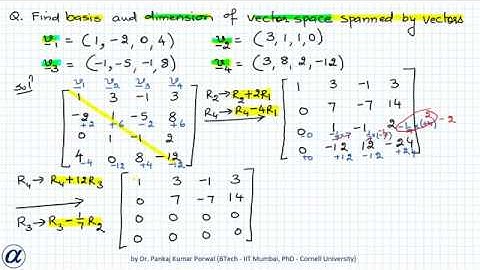 Q. Find basis and dimension of vector space spanned by vectors
v₁ = (1, -2, 0, 4) v₂ = (3, 1, 1, 0)
v₃ = (-1, -5, -1, 8) v₄ = (3, 8, 2, -12)
Solⁿ
v₁ v₂ v₃ v₄
1 3 -1 3
-2 1 -5 8
+2 +6 -2 +6
0 1 -1 2
4 0 8 -12
-4 -12 +4 -12
R₂→R₂+2R₁
R₄→R₄-4R₁
1 3 -1 3
0 7 -7 14
0 1 -1 2
0 -12 12 -24
+0 +12 -12 +24
R₄→ R₄+12R₃
R₃→ R₃-1/7 R₂
1 3 -1 3
0 7 -7 14
0 0 0 0
0 0 0 0
α
by Dr. Pankaj Kumar Porwal (BTech - IIT Mumbai, PhD - Cornell University)